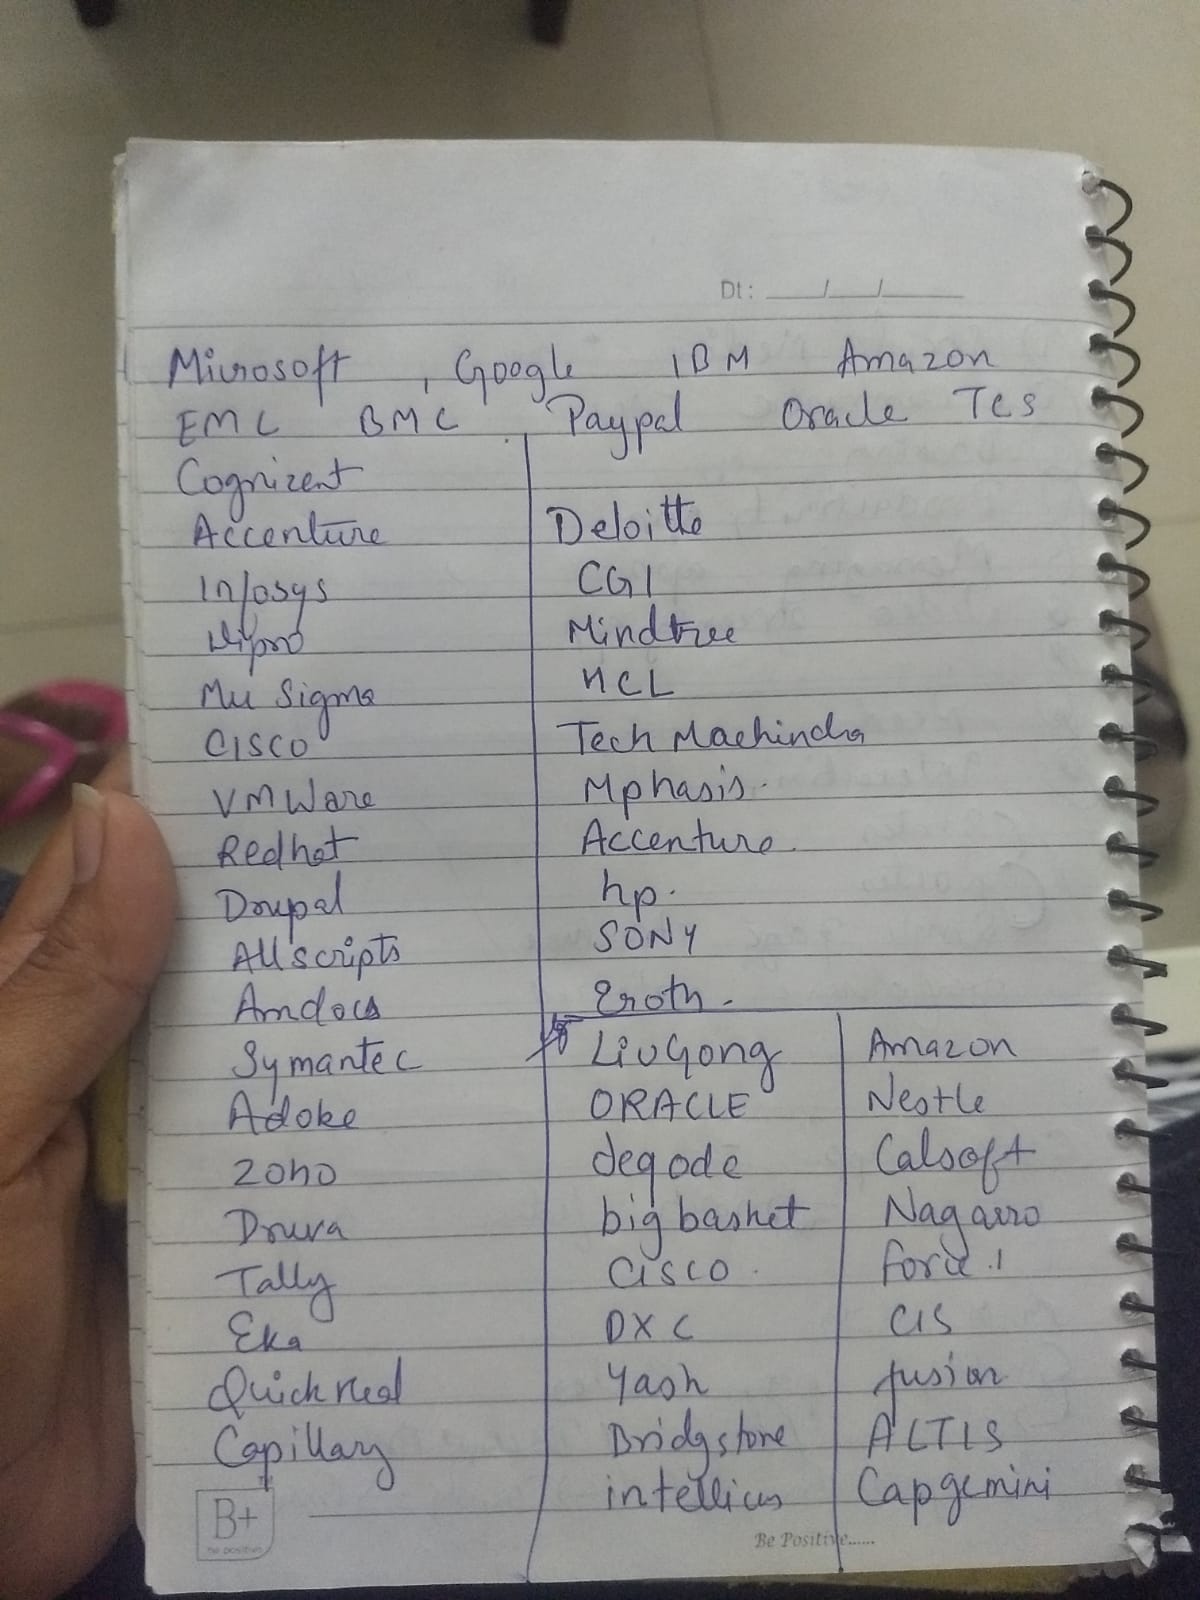 Dt: __/__/____
Microsoft , Google IBM Amazon
EMC BMC Paypal Oracle TCS
Cognizent
Accenture
Infosys
Wipro
Mu Sigma
CISCO
VMWare
Redhat
Drupal
Allscripts
Amdocs
Symantec
Adobe
ZOHO
Druva
Tally
Eka
Quick Heal
Capillary
Deloitte
CGI
Mindtree
HCL
Tech Machindra
Mphasis.
Accenture.
hp.
SONY
LiuGong
ORACLE
degode
big basket
CISCO.
DXC
Yash
Bridgstone
Amazon
Nestle
Calsoft
Nagarro
force.1
CIS
fusion
ALTIS
Capgemini
B+
be positive
Be Positive......